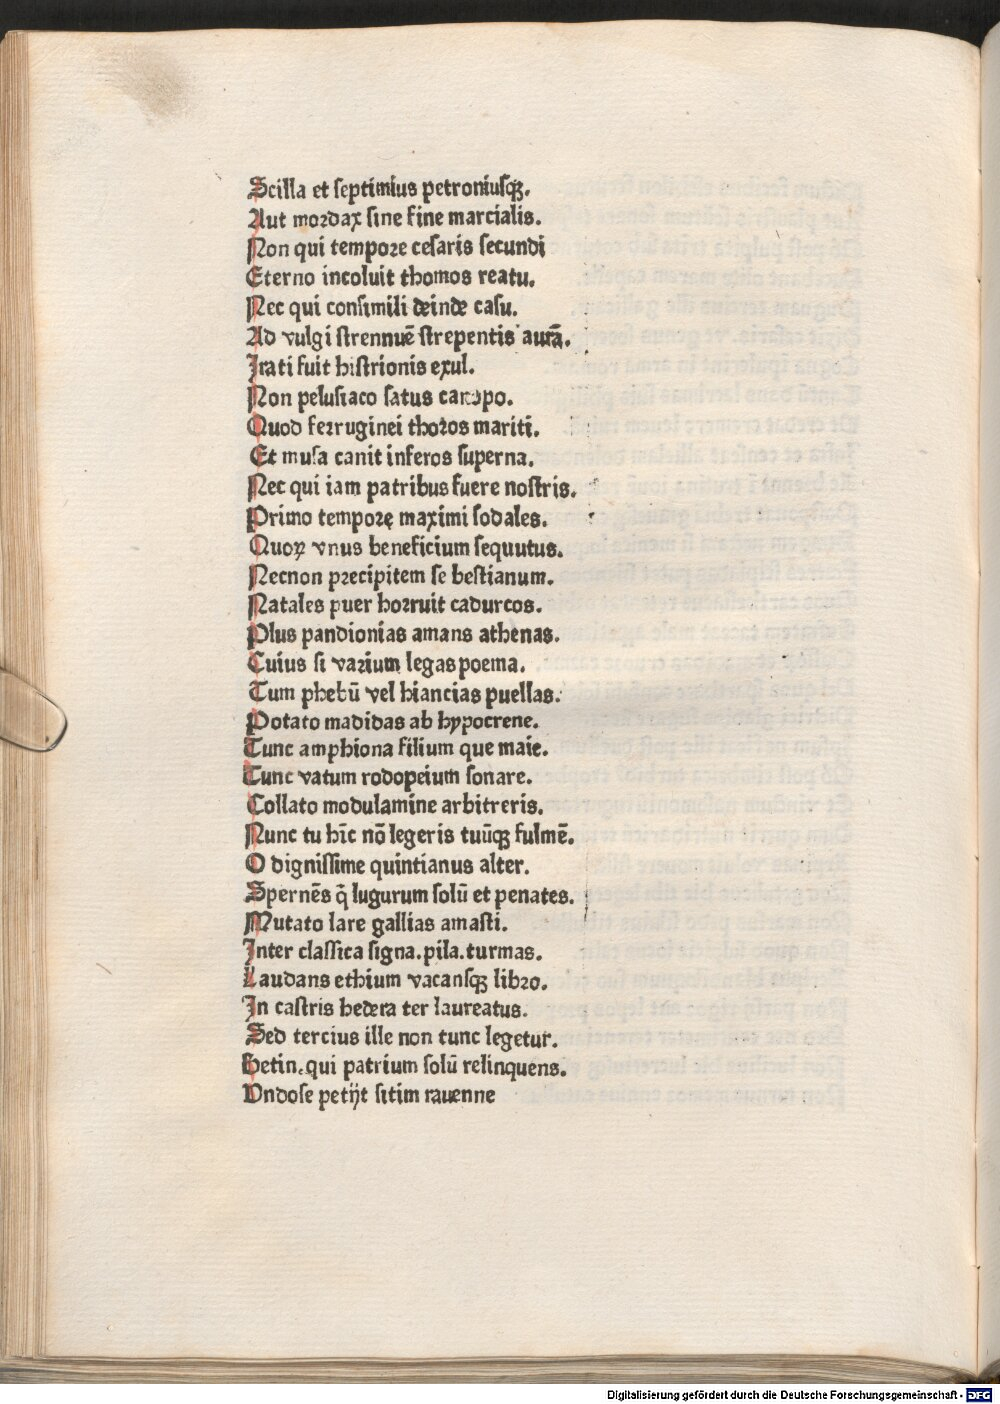 Scilla et septimius petroniusqꝫ.
Aut mordax sine fine marcialis.
Non qui tempore cesaris secundi
Eterno incoluit thomos reatu.
Nec qui consimili deinde casu.
Ad vulgi strennuē strepentis aurā.
Irati fuit histrionis exul.
Non pelusiaco satus canopo.
Quod ferruginei thoros mariti.
Et musa canit inferos superna.
Nec qui iam patribus fuere nostris.
Primo temporę maximi sodales.
Quoꝝ vnus beneficium sequutus.
Necnon precipitem se bestianum.
Natales puer horruit cadurcos.
Plus pandionias amans athenas.
Cuius si varium legas poema.
Tum phebū vel hiancias puellas.
Potato madidas ab hypocrene.
Tunc amphiona filium que maie.
Tunc vatum rodopeium sonare.
Collato modulamine arbitreris.
Nunc tu hīc nō legeris tuūqꝫ fulmē.
O dignissime quintianus alter.
Spernēs q̄ lugurum solū et penates.
Mutato lare gallias amasti.
Inter classica signa.pila.turmas.
Laudans ethium vacansqꝫ libro.
In castris hedera ter laureatus.
Sed tercius ille non tunc legetur.
Betin. qui patrium solū relinquens.
Vndose petijt sitim rauenne
Digitalisierung gefördert durch die Deutsche Forschungsgemeinschaft - DFG